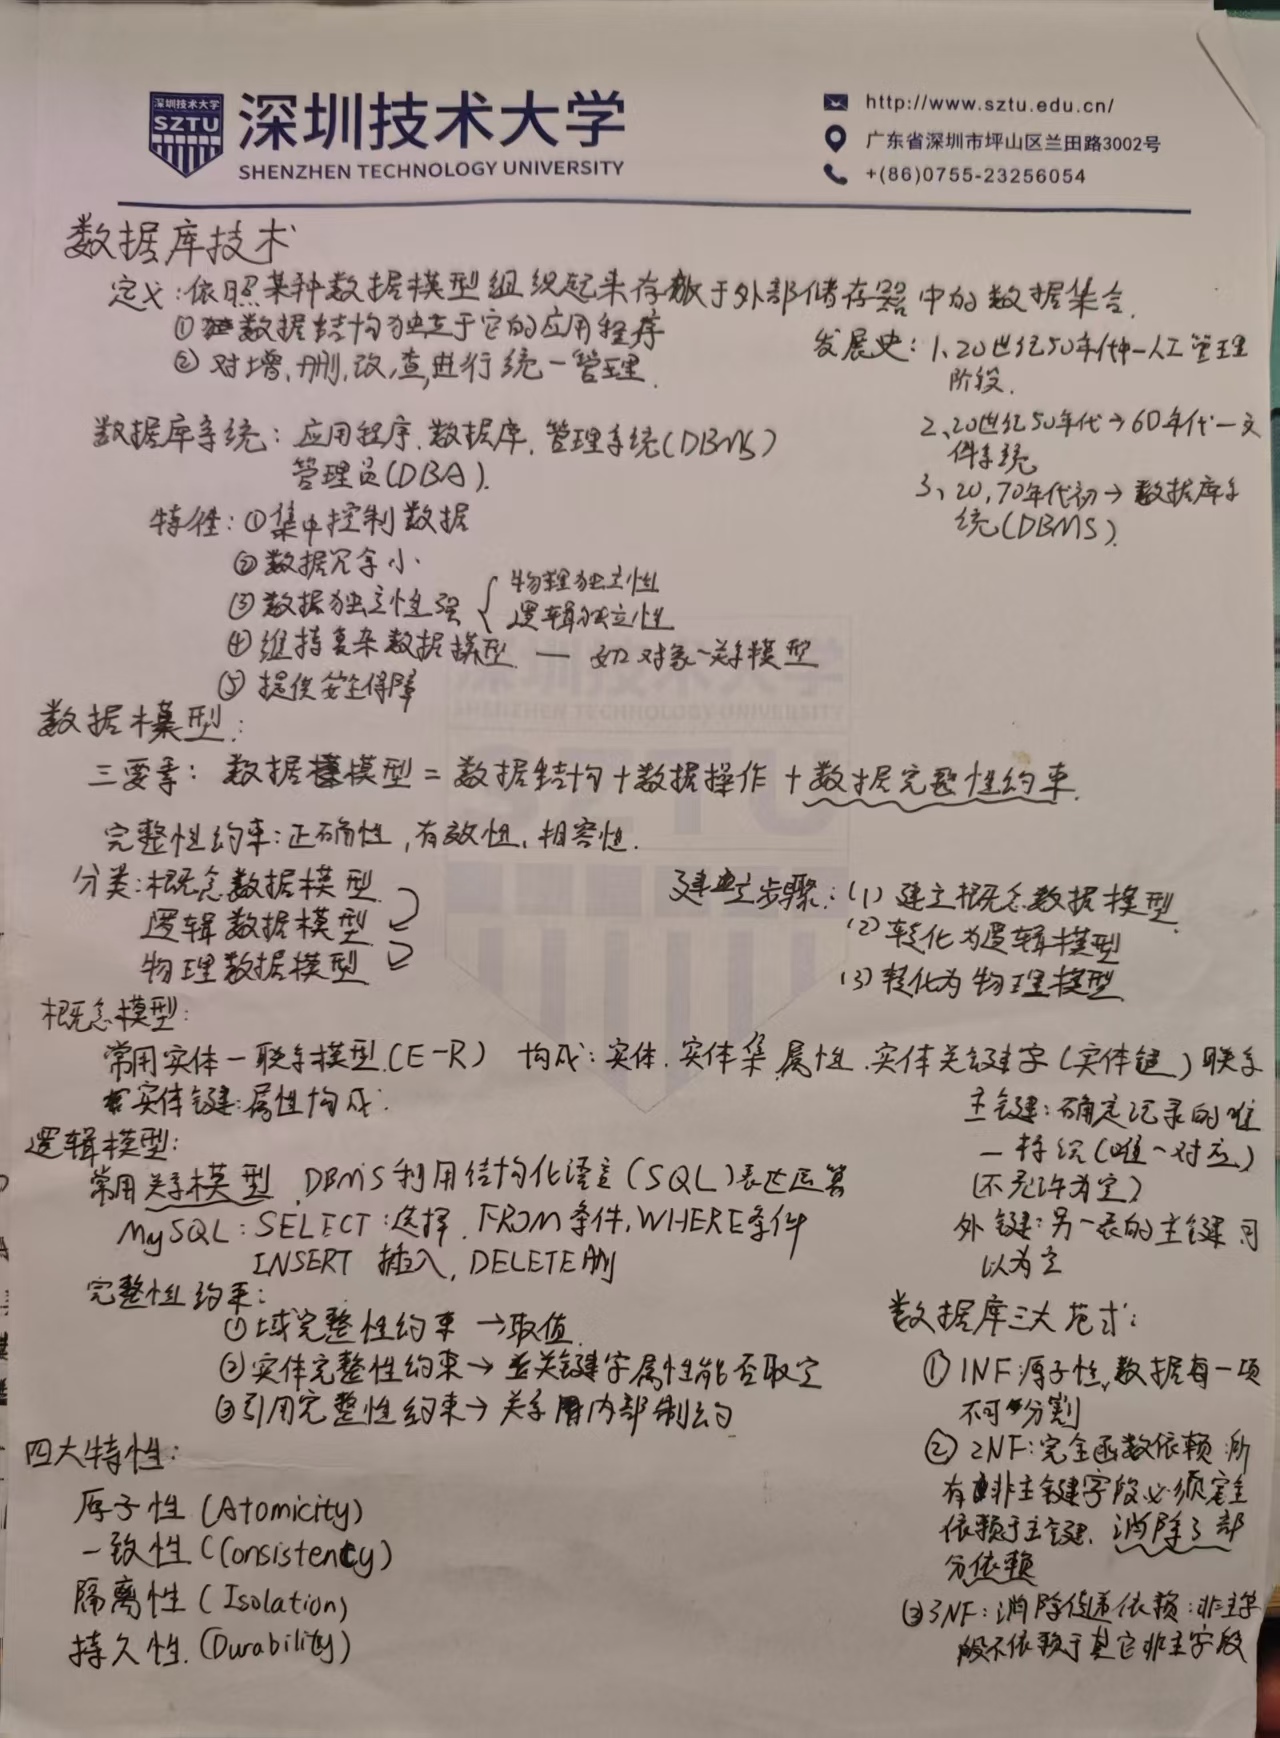 深圳技术大学
SZTU
深圳技术大学
SHENZHEN TECHNOLOGY UNIVERSITY
http://www.sztu.edu.cn/
广东省深圳市坪山区兰田路3002号
+(86)0755-23256054
数据库技术
定义:依照某种数据模型组织起来存放于外部储存器中的数据集合.
①数据结构独立于它的应用程序
②对增,删,改,查,进行统一管理.
发展史:1、20世纪50年代中—人工管理
阶段.
2、20世纪50年代→60年代—文
件系统
3、20,70年代初→数据库系
统(DBMS).
数据库系统:应用程序.数据库.管理系统(DBMS)
管理员(DBA).
特性:①集中控制数据
②数据冗余小.
③数据独立性强{物理独立性
逻辑独立性
④维持复杂数据模型.—如对象-关系模型
⑤提供安全保障
深圳技术大学
SHENZHEN TECHNOLOGY UNIVERSITY
SZTU
数据模型:
三要素:数据模型=数据结构+数据操作+数据完整性约束.
完整性约束:正确性,有效性,相容性.
分类:概念数据模型
逻辑数据模型
物理数据模型
建立步骤:(1)建立概念数据模型.
(2)转化为逻辑模型
(3)转化为物理模型
概念模型:
常用实体-联系模型.(E-R) 构成:实体.实体集.属性.实体关键字(实体键)联系
实体键:属性构成.
主键:确定记录的唯
一标识(唯一对应)
(不允许为空)
外键:另一表的主键可
以为空
逻辑模型:
常用关系模型.DBMS利用结构化语言(SQL)表达运算
MySQL:SELECT:选择.FROM条件,WHERE条件
INSERT 插入,DELETE删
完整性约束:
①域完整性约束→取值.
②实体完整性约束→关键字属性能否取空
③引用完整性约束→关系内部制约
数据库三大范式:
①1NF:原子性,数据每一项
不可分割
②2NF:完全函数依赖.所
有非主键字段必须完全
依赖于主键.消除了部
分依赖
③3NF:消除传递依赖:非主字
段不依赖于其它非主字段
四大特性:
原子性(Atomicity)
一致性(Consistency)
隔离性(Isolation)
持久性.(Durability)